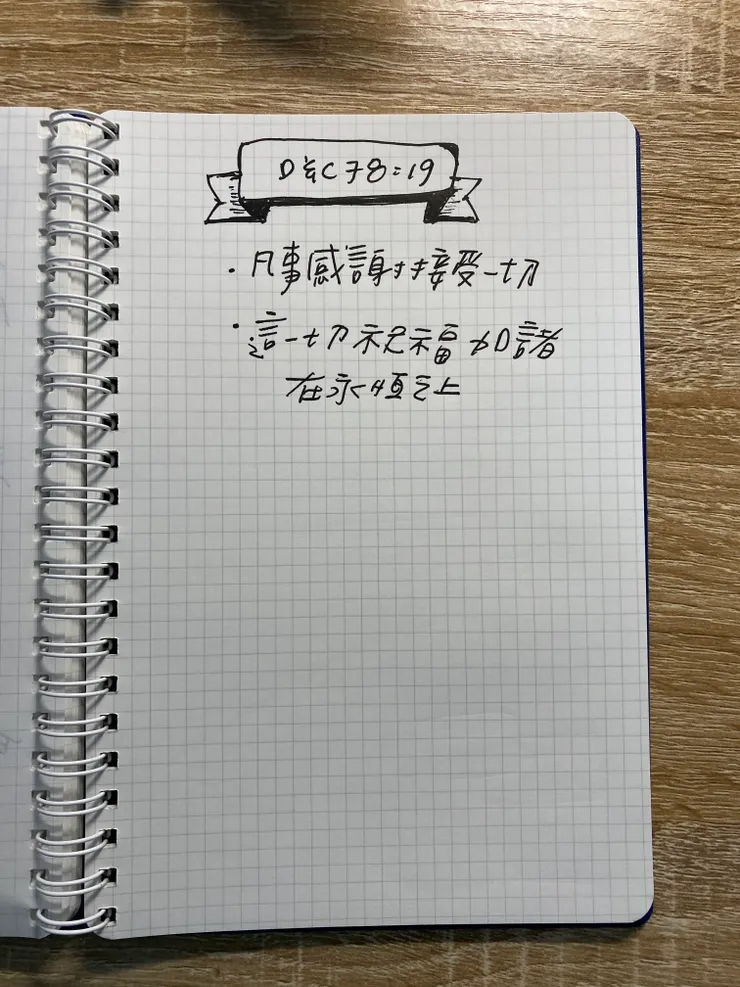 D&C 78:19
· 凡事感謝接受一切
· 這一切祝福加諸
在永恆之上